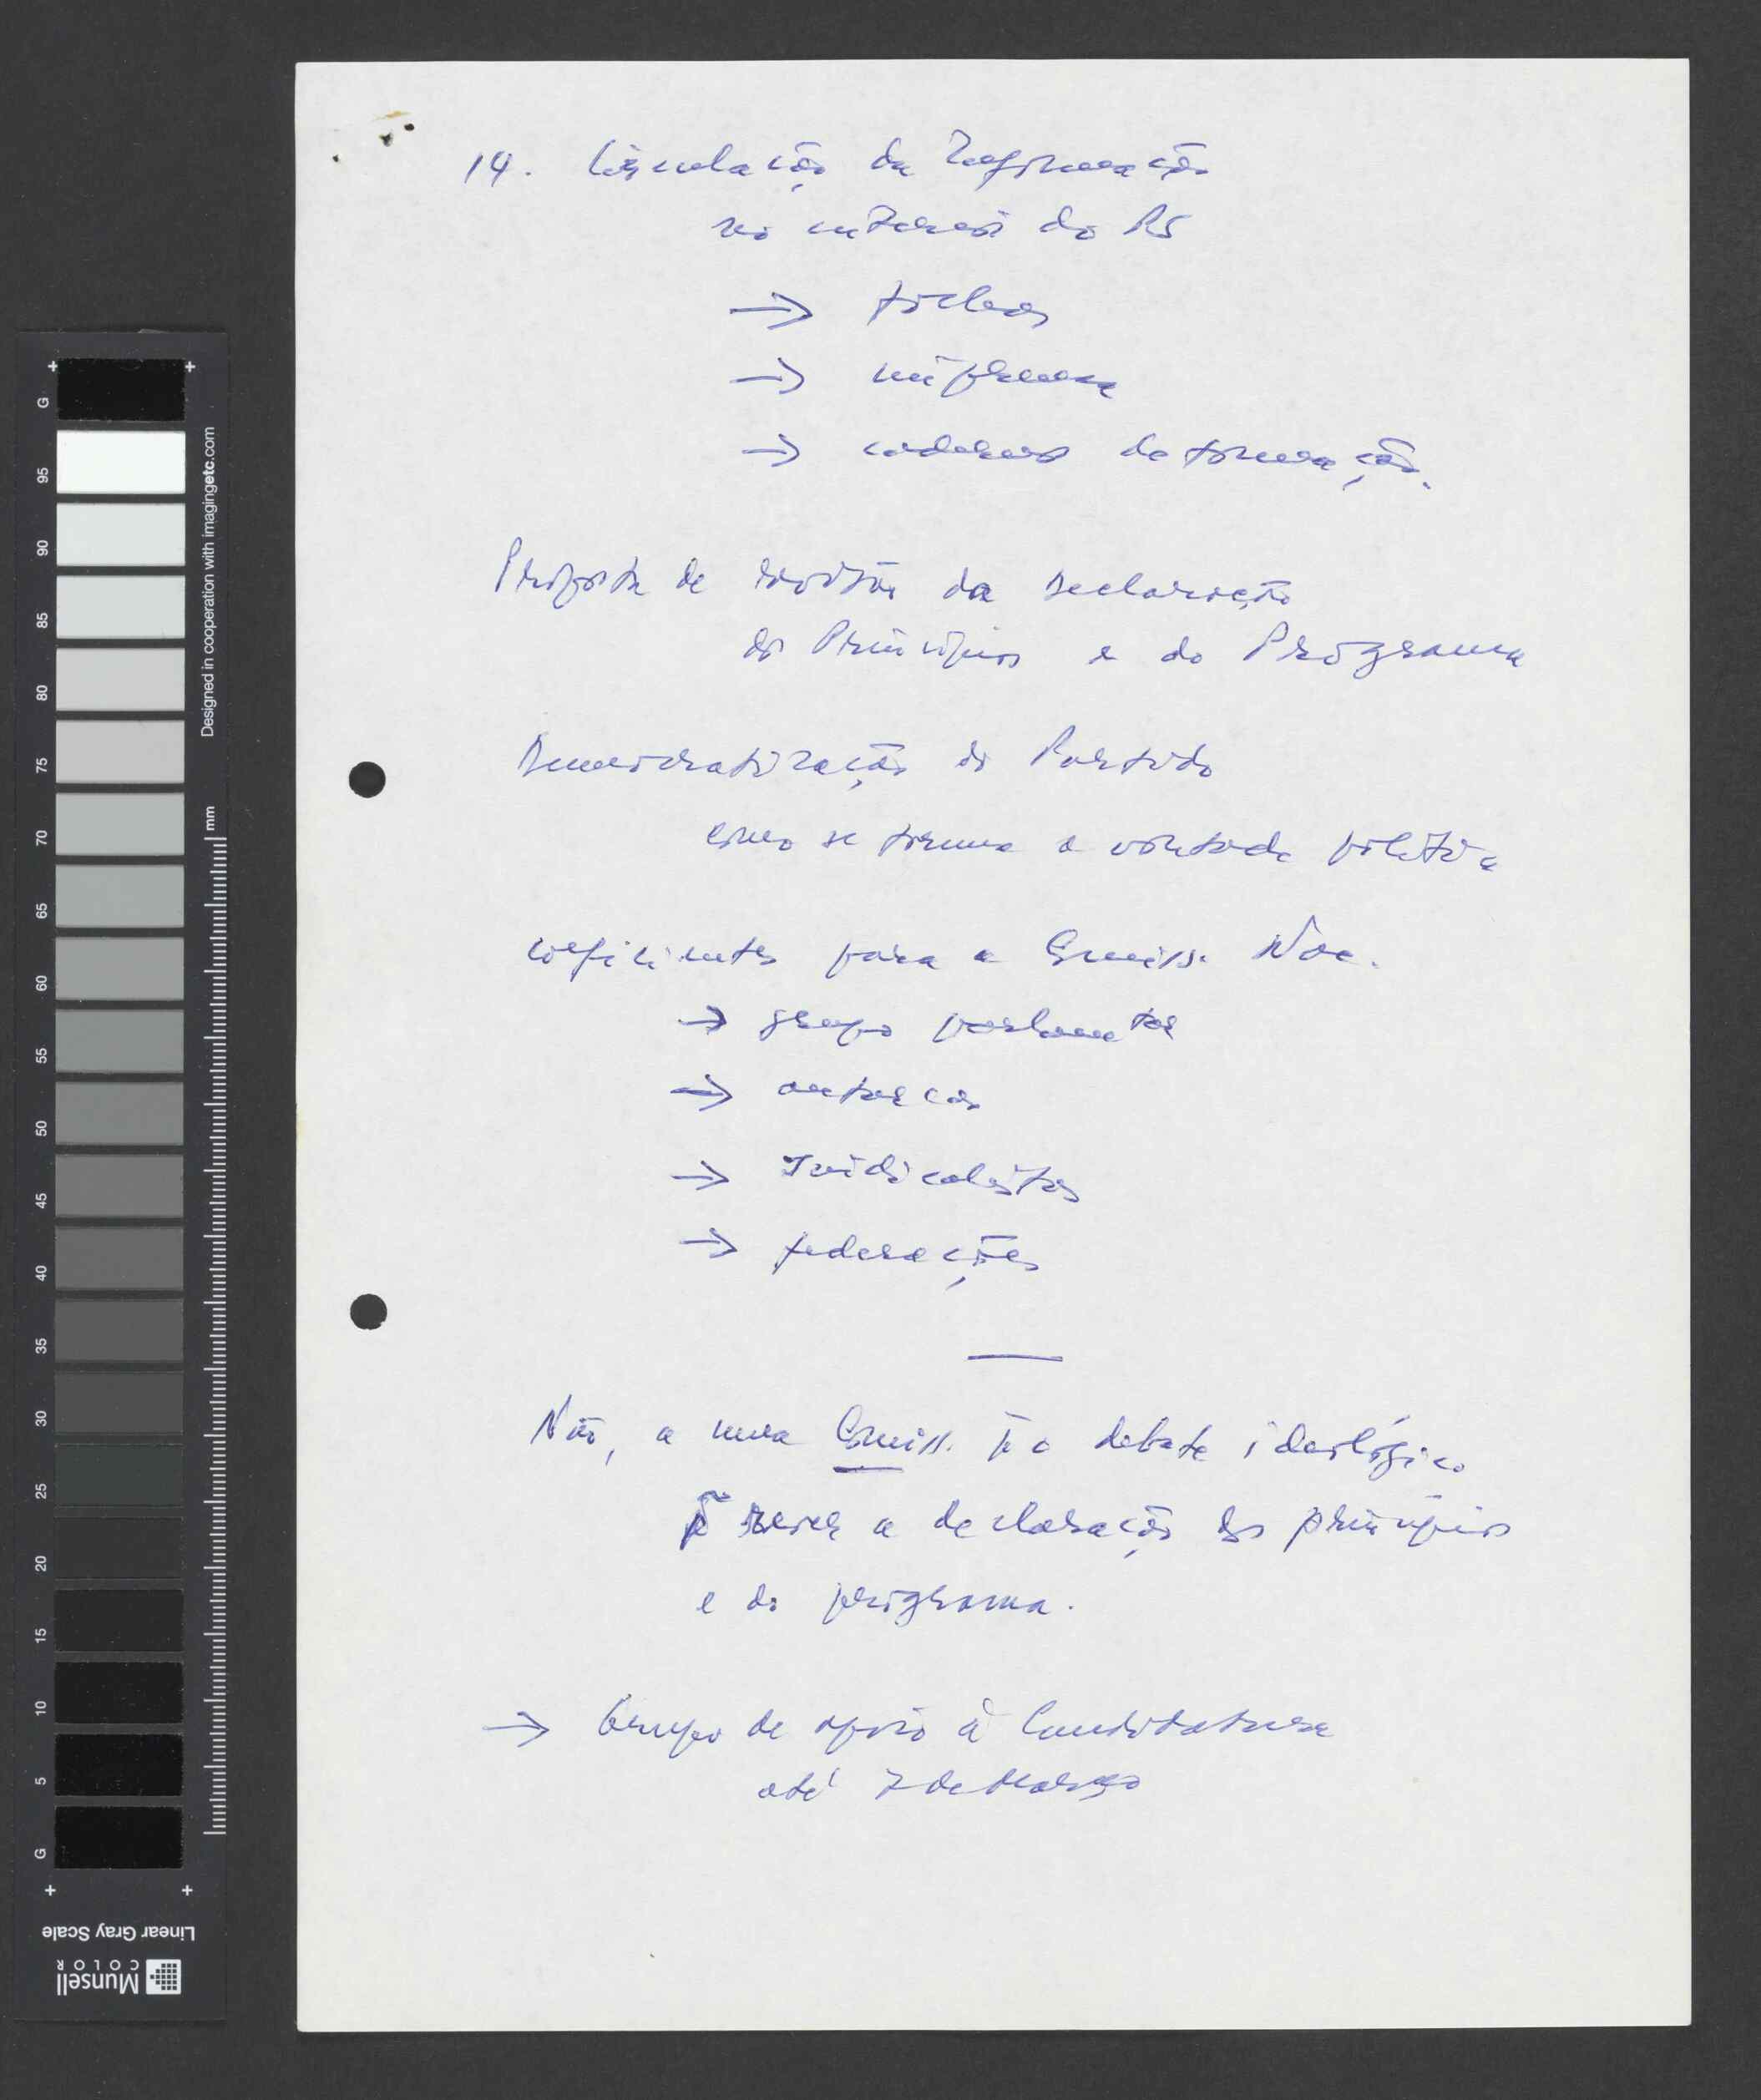 14. Circulação da Informação
no interior do PS
→ fichas
→ imprensa
→ cadernos de formação.
Proposta de revisão da Declaração
de Princípios e do Programa
Democratização do Partido
como se forma a vontade política
coeficientes para a Comiss. Nac.
→ grupo parlamentar
→ autarcas
→ Sindicalistas
→ federações
Não, a uma Comiss. p̃ o debate ideológico
p̃ rever a declaração dos princípios
e do programa.
→ Grupo de apoio à Candidatura
até 7 de Março
G
95
90
85
80
75
70
65
60
55
50
45
40
35
30
25
20
15
10
5
G
mm
Designed in cooperation with imagingetc.com
Linear Gray Scale
Munsell
COLOR